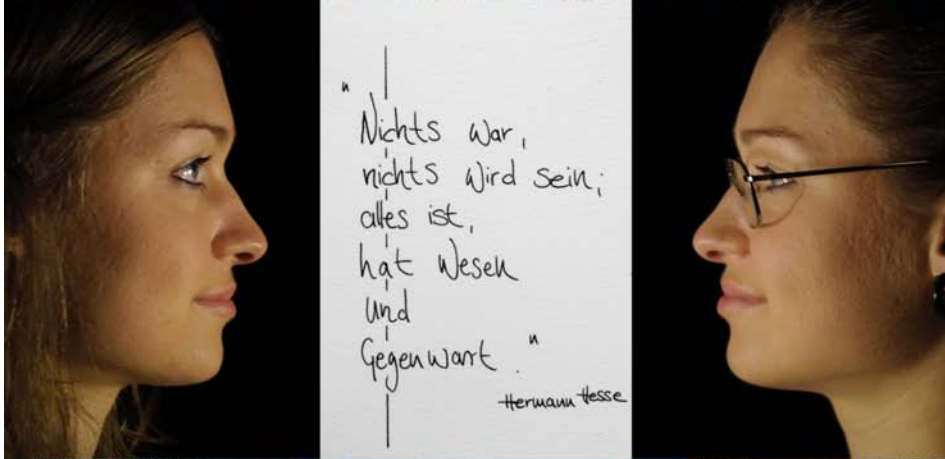 "
Nichts war,
nichts wird sein;
alles ist,
hat Wesen
und
Gegenwart."
Hermann Hesse